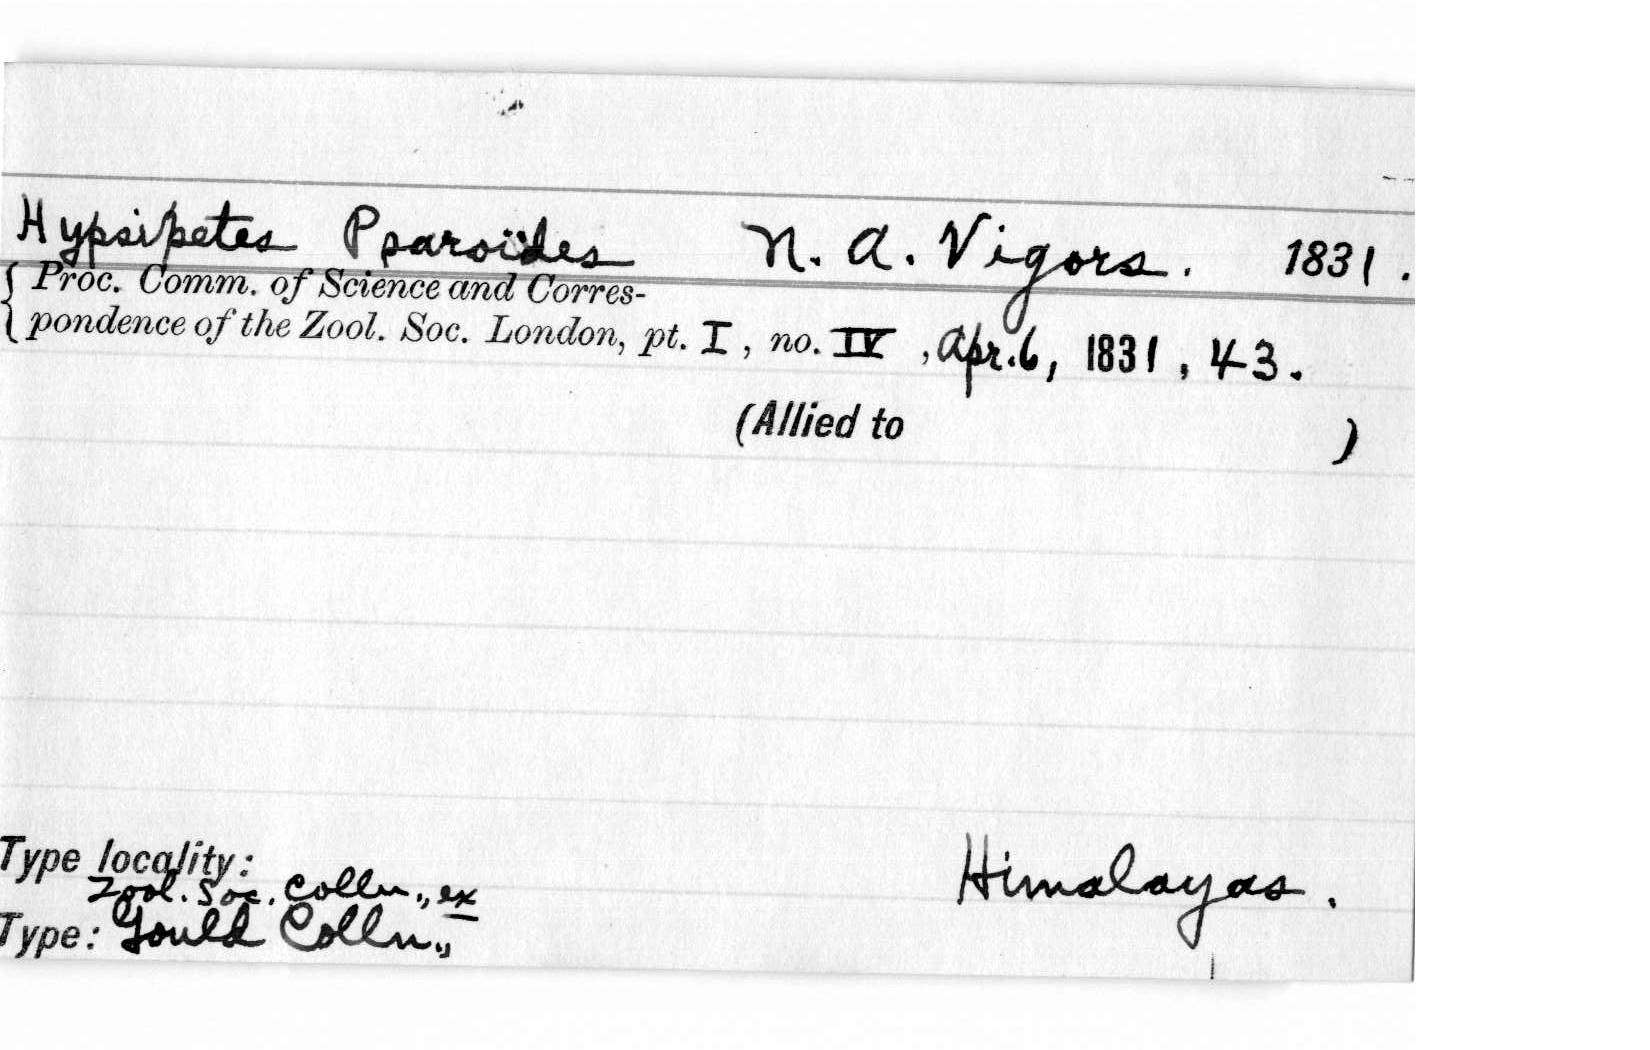 Hypsipetes Psaroïdes N. A. Vigors. 1831.
Proc. Comm. of Science and Corres-
pondence of the Zool. Soc. London, pt. I, no. IV, Apr. 6, 1831, 43.
(Allied to )
Type locality: Himalayas.
Zool. Soc. Colln., ex
Type: Gould Colln.,